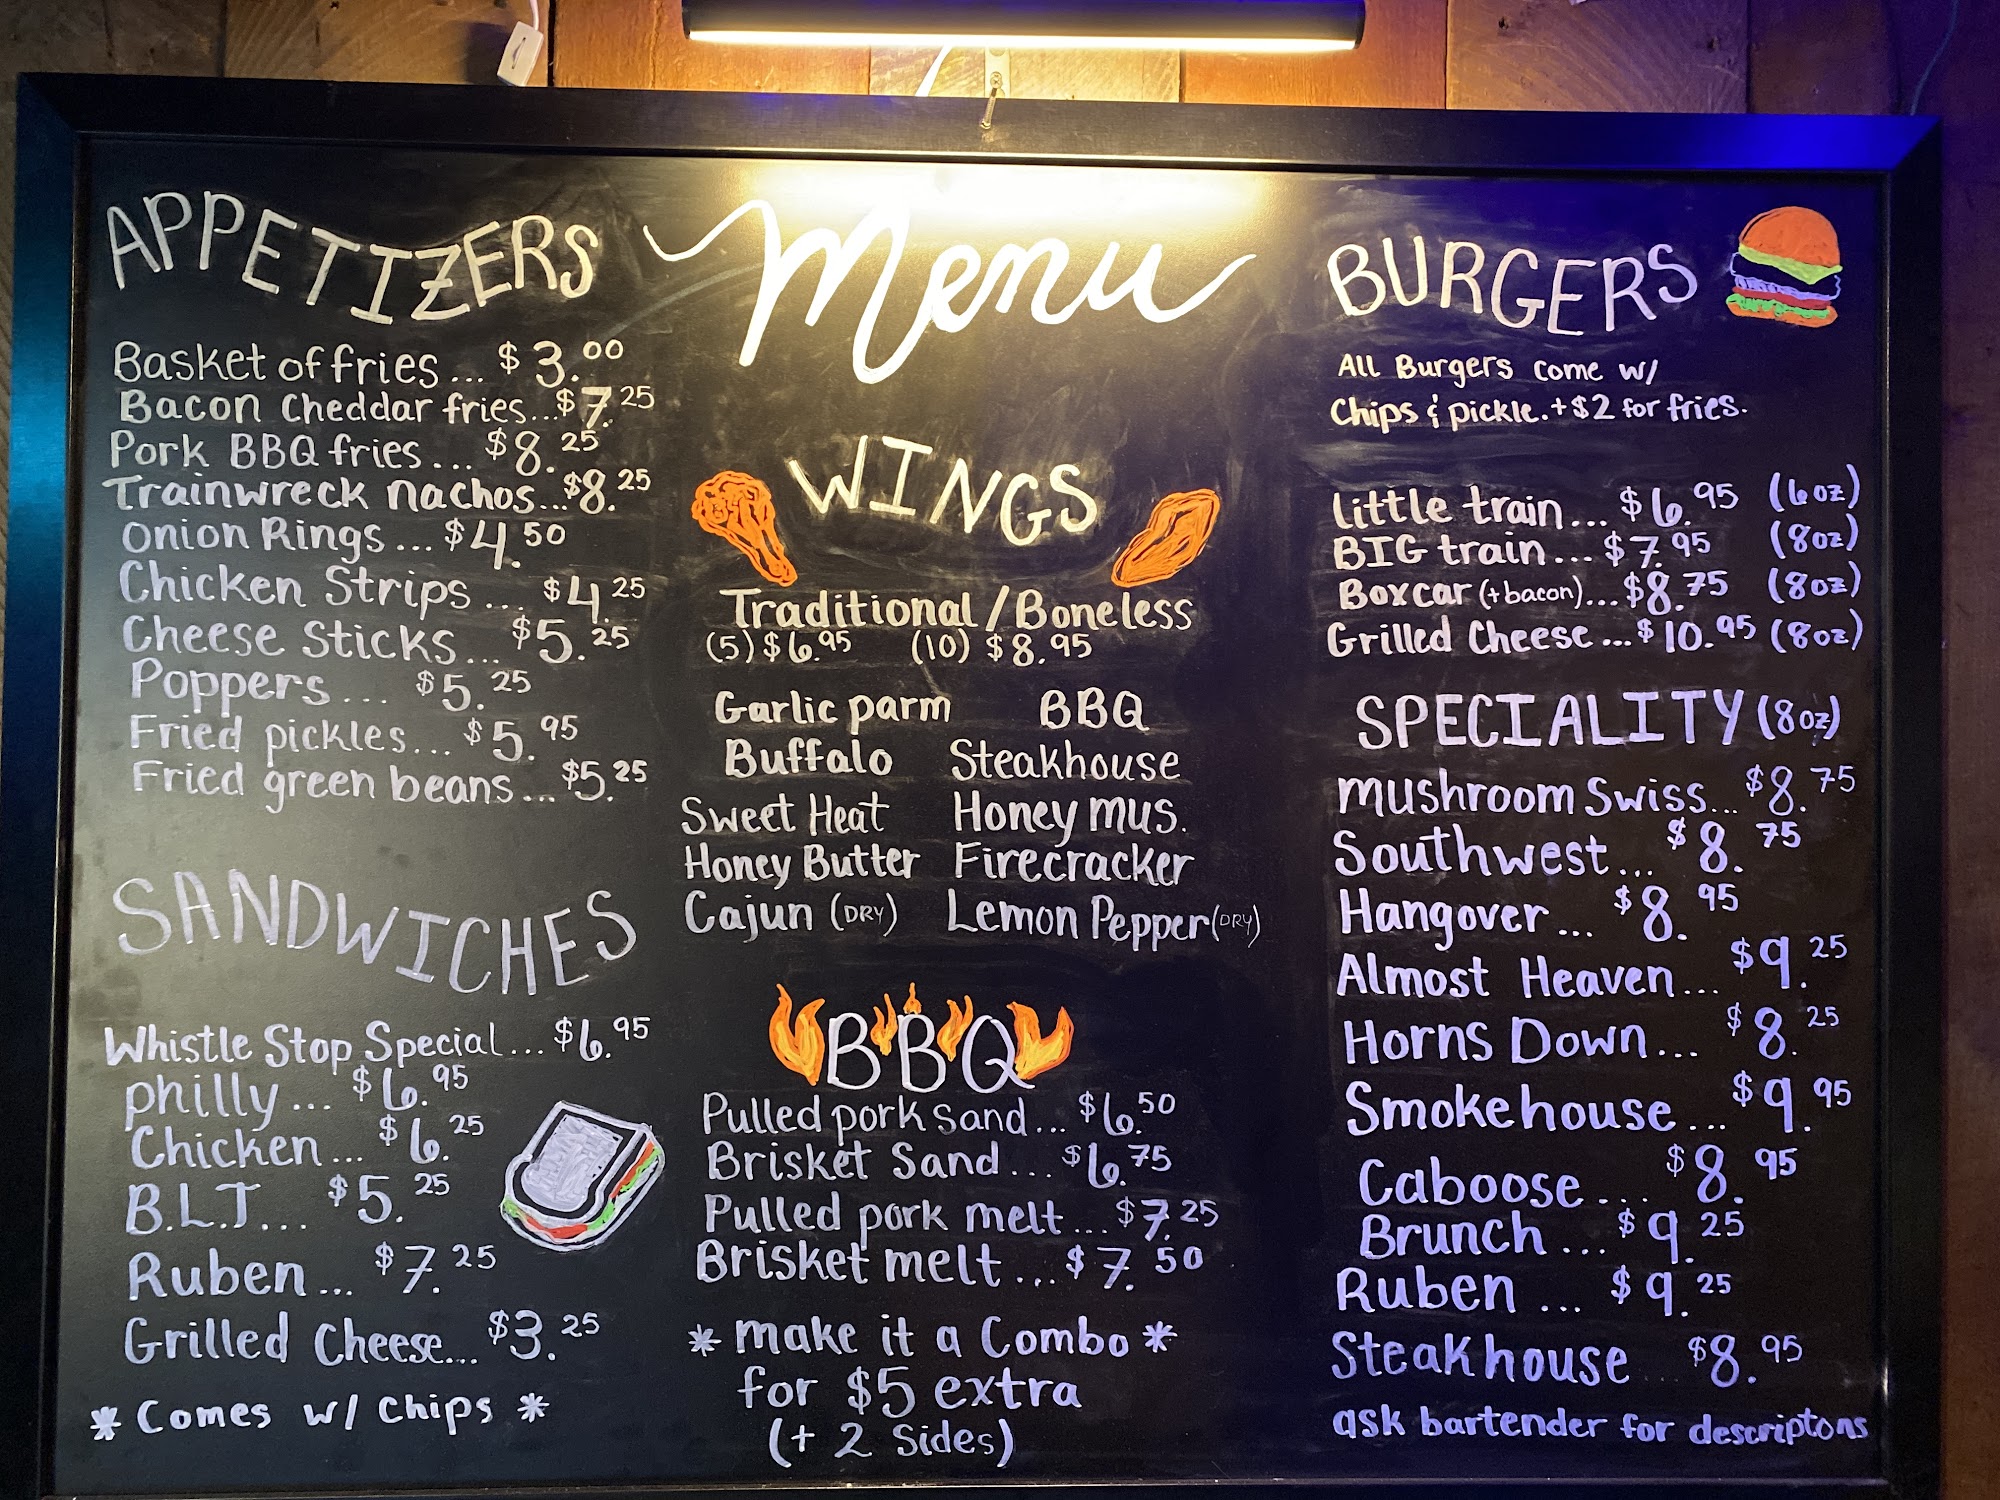 Menu
APPETIZERS
Basket of fries... $3.00
Bacon Cheddar fries...$7.25
Pork BBQ fries... $8.25
Trainwreck nachos...$8.25
Onion Rings... $4.50
Chicken Strips... $4.25
Cheese Sticks... $5.25
Poppers... $5.25
Fried pickles... $5.95
Fried green beans... $5.25
SANDWICHES
Whistle Stop Special... $6.95
philly... $6.95
Chicken... $6.25
B.L.T... $5.25
Ruben... $7.25
Grilled Cheese... $3.25
* Comes w/ chips *
WINGS
Traditional/Boneless
(5) $6.95 (10) $8.95
Garlic parm BBQ
Buffalo Steakhouse
Sweet Heat Honey mus.
Honey Butter Firecracker
Cajun (DRY) Lemon Pepper (DRY)
BBQ
Pulled pork sand... $6.50
Brisket Sand... $6.75
Pulled pork melt... $7.25
Brisket melt... $7.50
* make it a Combo *
for $5 extra
(+ 2 Sides)
BURGERS
All Burgers come w/
Chips & pickle. + $2 for fries.
little train... $6.95 (6oz)
BIG train... $7.95 (8oz)
Boxcar (+bacon)...$8.75 (8oz)
Grilled Cheese...$10.95 (8oz)
SPECIALITY (8oz)
mushroom Swiss... $8.75
Southwest... $8.75
Hangover... $8.95
Almost Heaven... $9.25
Horns Down... $8.25
Smokehouse... $9.95
Caboose... $8.95
Brunch... $9.25
Ruben... $9.25
Steakhouse $8.95
ask bartender for descriptons